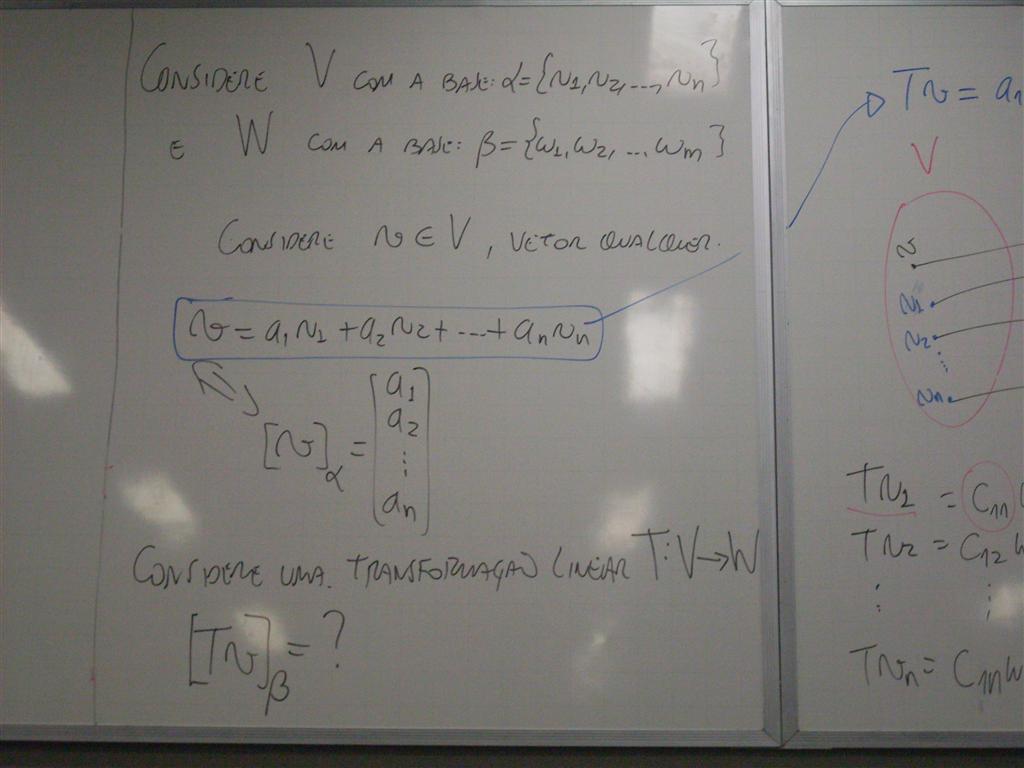 CONSIDERE V COM A BASE: α={v1,v2,...,vn}
E W COM A BASE: β={w1,w2,...,wm}
CONSIDERE v∈V, VETOR QUALQUER.
v=a1v1+a2v2+...+anvn
[v]α=[a1
a2
⋮
an]
CONSIDERE UMA TRANSFORMAÇÃO LINEAR T:V→W
[Tv]β=?
Tv=a1
V
v
v1
v2
⋮
vn
Tv1=C11
Tv2=C12w
⋮ ⋮
Tvn=C1nw